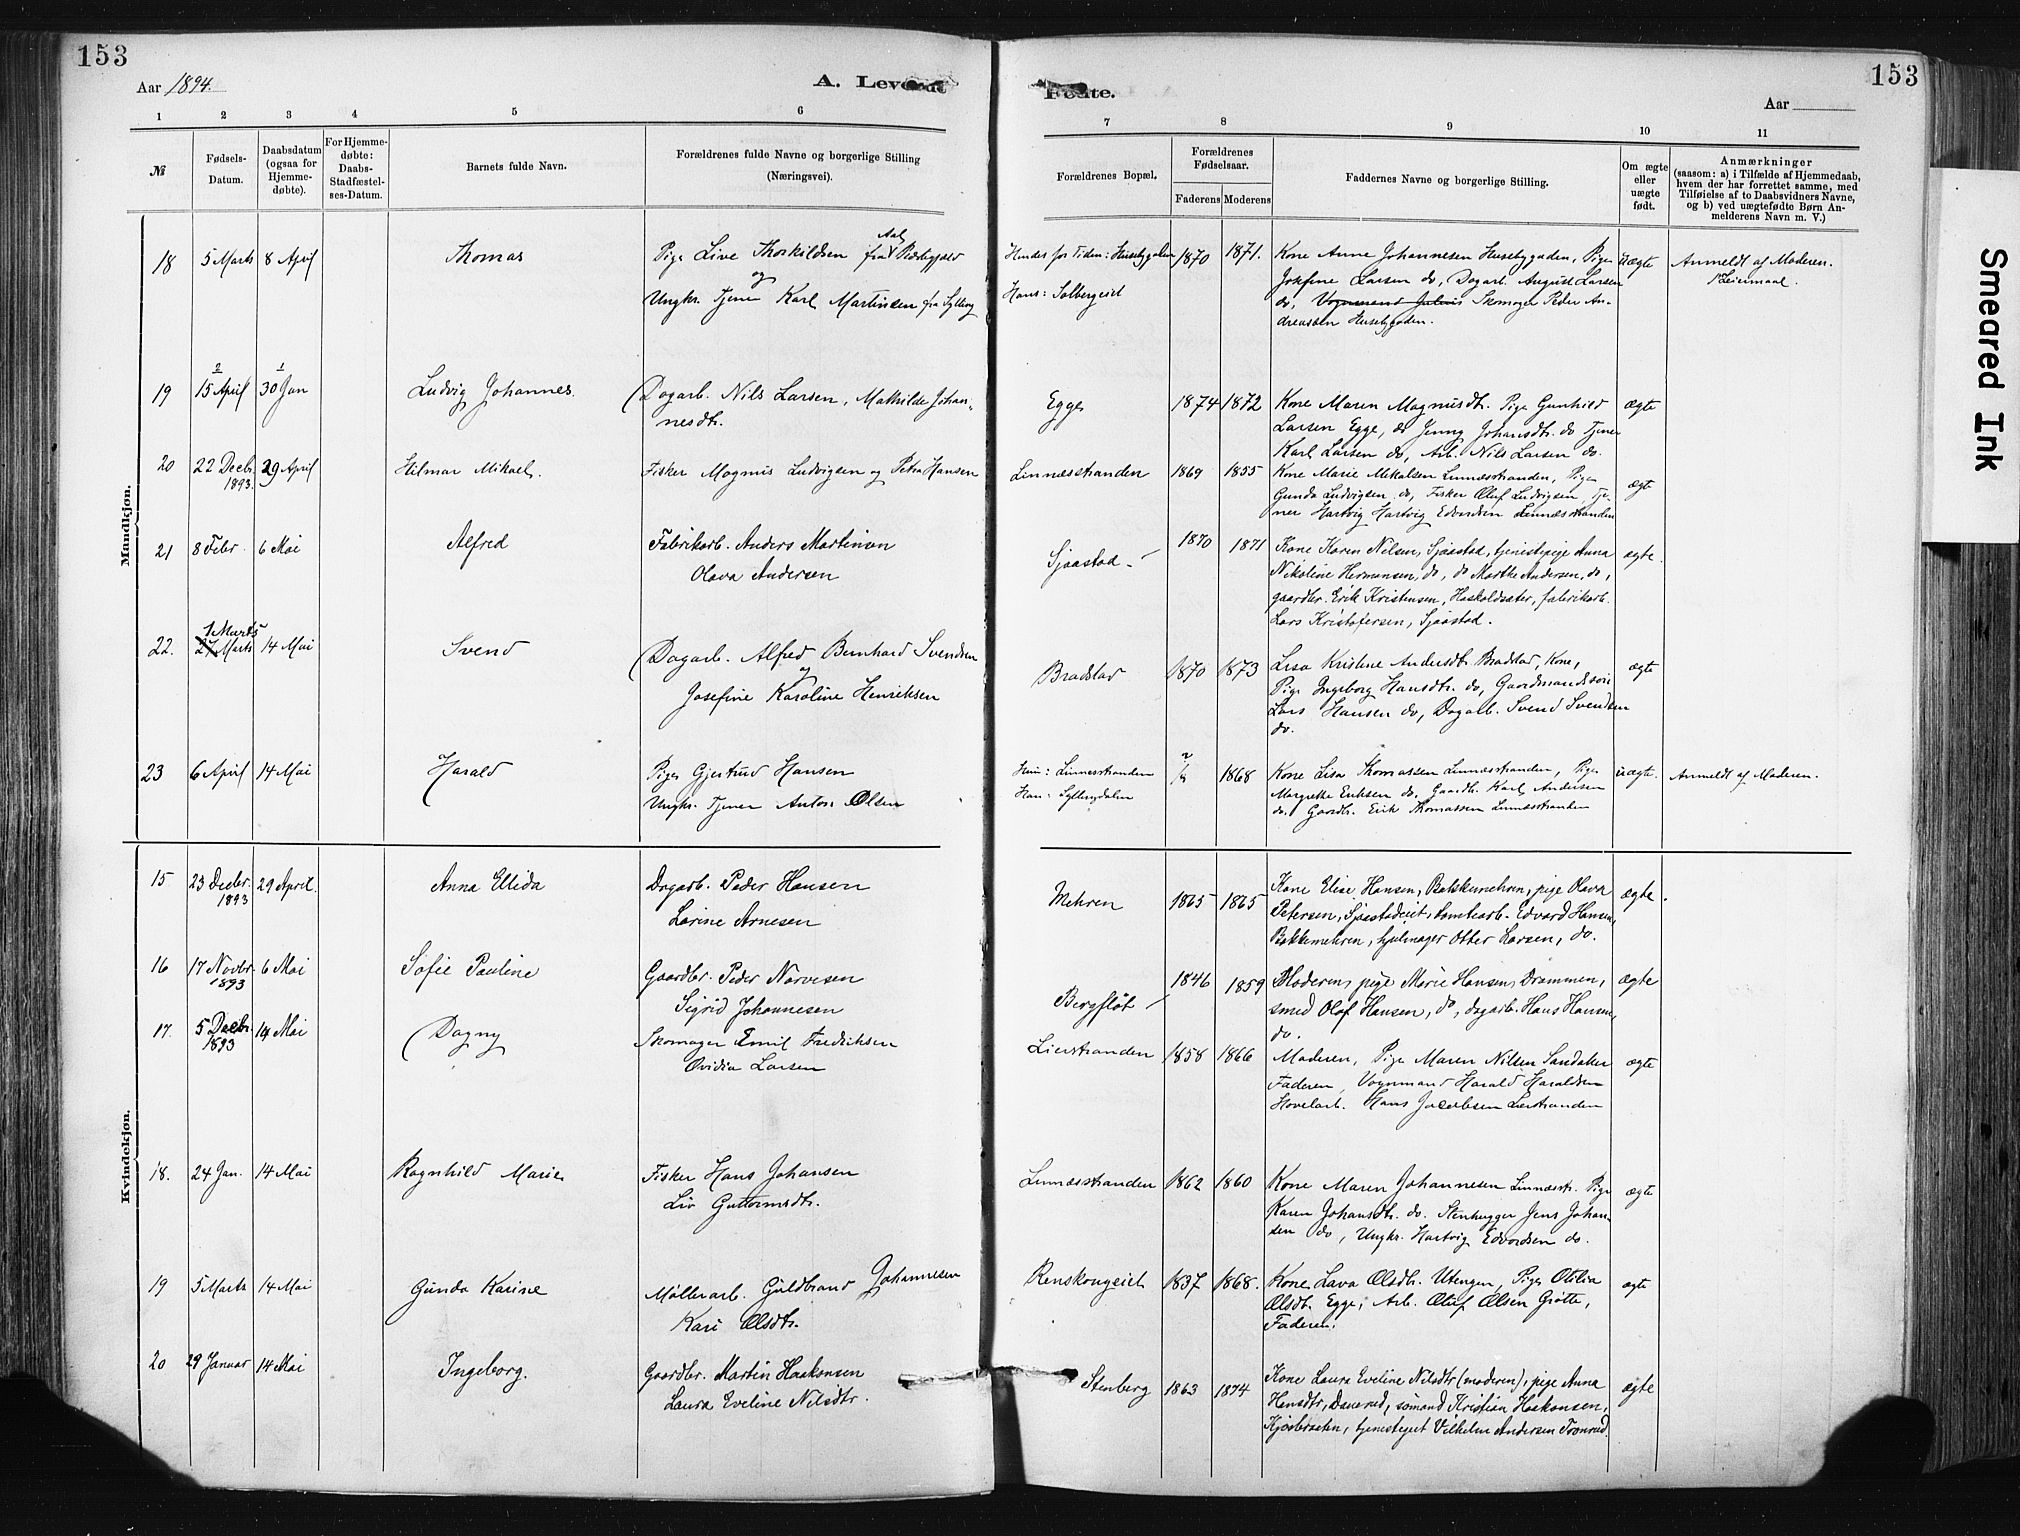 153
Aar 1894.
A. Levende
1 2 3 4 5 6
№
Fødsels-
Datum.
Daabsdatum
(ogsaa for
Hjemme-
døbte).
For Hjemme-
døbte:
Daabs-
Stadfæstel-
ses-Datum.
Barnets fulde Navn.
Forældrenes fulde Navne og borgerlige Stilling
(Næringsvei).
Mandkjøn.
18 5 Marts 8 April Thomas
Pige Live Thorkildsen fra Aal Præstegjæld
og
Ungkr. Tjener Karl Martinsen fra Sylling
2 1
19 15 April 30 Jan Ludvig Johannes.
Dagarb. Nils Larsen, Mathilde Johan-
nesdtr.
20 22 Decbr. 1893. 29 April Hilmar Mikael.
Fisker Magnus Ludvigsen og Petra Hansen
21 8 Febr. 6 Mai Alfred
Fabrikarb. Anders Martinsen
Olava Andersen
1 Marts
22. 27 Marts 14 Mai Svend
Dagarb. Alfred Bernhard Svendsen
og
Josefine Karoline Henriksen
23 6 April 14 Mai Harald
Pige Gjertrud Hansen
Ungkr. Tjener Anton Olsen
Kvindekjøn.
15 23 Decbr. 1893 29 April. Anna Ellida
Dagarb. Peder Hansen
Lorine Arnesen
16 17 Novbr. 1893 6 Mai Sofie Pauline
Gaardbr. Peder Narvesen
Sigrid Johannesen
17. 5 Decbr. 1893 14 Mai Dagny
Skomager Emil Fredriksen
Ovidia Larsen
18. 24 Jan. 14 Mai Ragnhild Marie
Fisker Hans Johansen
Liv Guttormsdtr.
19 5 Marts 14 Mai Gunda Karine
Møllerarb. Guldbrand Johannesen
Kari Olsdtr.
20 29 Januar 14 Mai Ingeborg.
Gaardbr. Martin Haakonsen
Laura Eveline Nilsdtr.
153
Fødte.
Aar
7 8 9 10 11
Forældrenes Bopæl.
Forældrenes
Fødselsaar.
Faderens Moderens
Faddernes Navne og borgerlige Stilling.
Om ægte
eller
uægte
født.
Anmærkninger
(saasom: a) i Tilfælde af Hjemmedaab,
hvem der har forrettet samme, med
Tilføielse af to Daabsvidners Navne,
og b) ved uægtefødte Børn An-
melderens Navn m. V.)
Hendes for Tiden: Husebygaden 1870 1871. Kone Anne Johannesen Husebygaden, Pige uægte Anmeldt af Moderen.
Hans: Solbergeiet Josefine Larsen do, Dagarb. August Larsen 1ste Leiermaal.
do, Vognmand Julius Skomager Peder An-
dreassen Husebygaden.
Egge 1874 1872 Kone Maren Magnusdtr. Pige Gunhild ægte
Larsen Egge, do Jenny Johansdtr. do Tjener
Karl Larsen do, Arb. Nils Larsen do.
Linnæsstranden 1869 1855 Kone Marie Mikalsen Linnæsstranden, Pige ægte
Gunda Ludvigsen do, Fisker Oluf Ludvigsen, Tje-
ner Hartvig Hartvig Edvardsen Linnæsstranden
Sjaastad 1870 1871 Kone Karen Nilsen, Sjaastad, tjenestepige Anna ægte.
Nikoline Hermansen, do, do Marthe Andersen, do,
gaardbr. Erik Kristensen, Haskoldsæter, fabrikarb.
Lars Kristofersen, Sjaastad.
Bradstad 1870 1873 Lisa Kristine Andersdtr. Bradstad, Kone, ægte
Pige Ingeborg Hansdtr. do, Gaardmandssøn
Lars Hansen do, Dagarb. Svend Svendsen
do.
Hun: Linnesstranden 1868 Kone Lisa Thomassen Linnæsstranden, Pige uægte. Anmeldt af Moderen.
Han: Syllingdalen Margrethe Eriksen do, Gaardbr. Karl Andersen
do. Gaardbr. Erik Thomassen Linnæsstranden
Mehren 1865 1865 Kone Elise Hansen, Bakkemehren, pige Olava ægte.
Petersen, Sjaastadeiet, tomtearb. Edvard Hansen,
Bakkemehren, hjulmager Otter Larsen, do.
Bergfløt 1846 1859 Moderen, pige Marie Hansen, Drammen, ægte
smed Olaf Hansen, do, dagarb. Hans Hansen,
do.
Lierstranden 1858 1866 Moderen, Pige Maren Nilsen Sandaker ægte
Faderen, Vognmand Harald Haraldsen
Høvelarb. Hans Jacobsen Lierstranden
Linnæsstranden 1862 1860 Kone Maren Johannesen Linnæsstr. Pige ægte
Karen Johansdtr. do. Stenhugger Jens Johan-
sen do, Ungkr. Hartvig Edvardsen do.
Renskougeiet 1837 1868. Kone Lava Olsdtr. Utengen, Pige Otilia ægte
Olsdtr. Egge, Arb. Oluf Olsen Grøtte,
Faderen.
Stenberg 1863 1874 Kone Laura Eveline Nilsdtr (moderen), pige Anna ægte
Hansdtr, Danerud, sømand Kristian Haakonsen,
Kjøsbraaten, tjenestegut Vilhelm Andersen Tronrud.
Smeared Ink